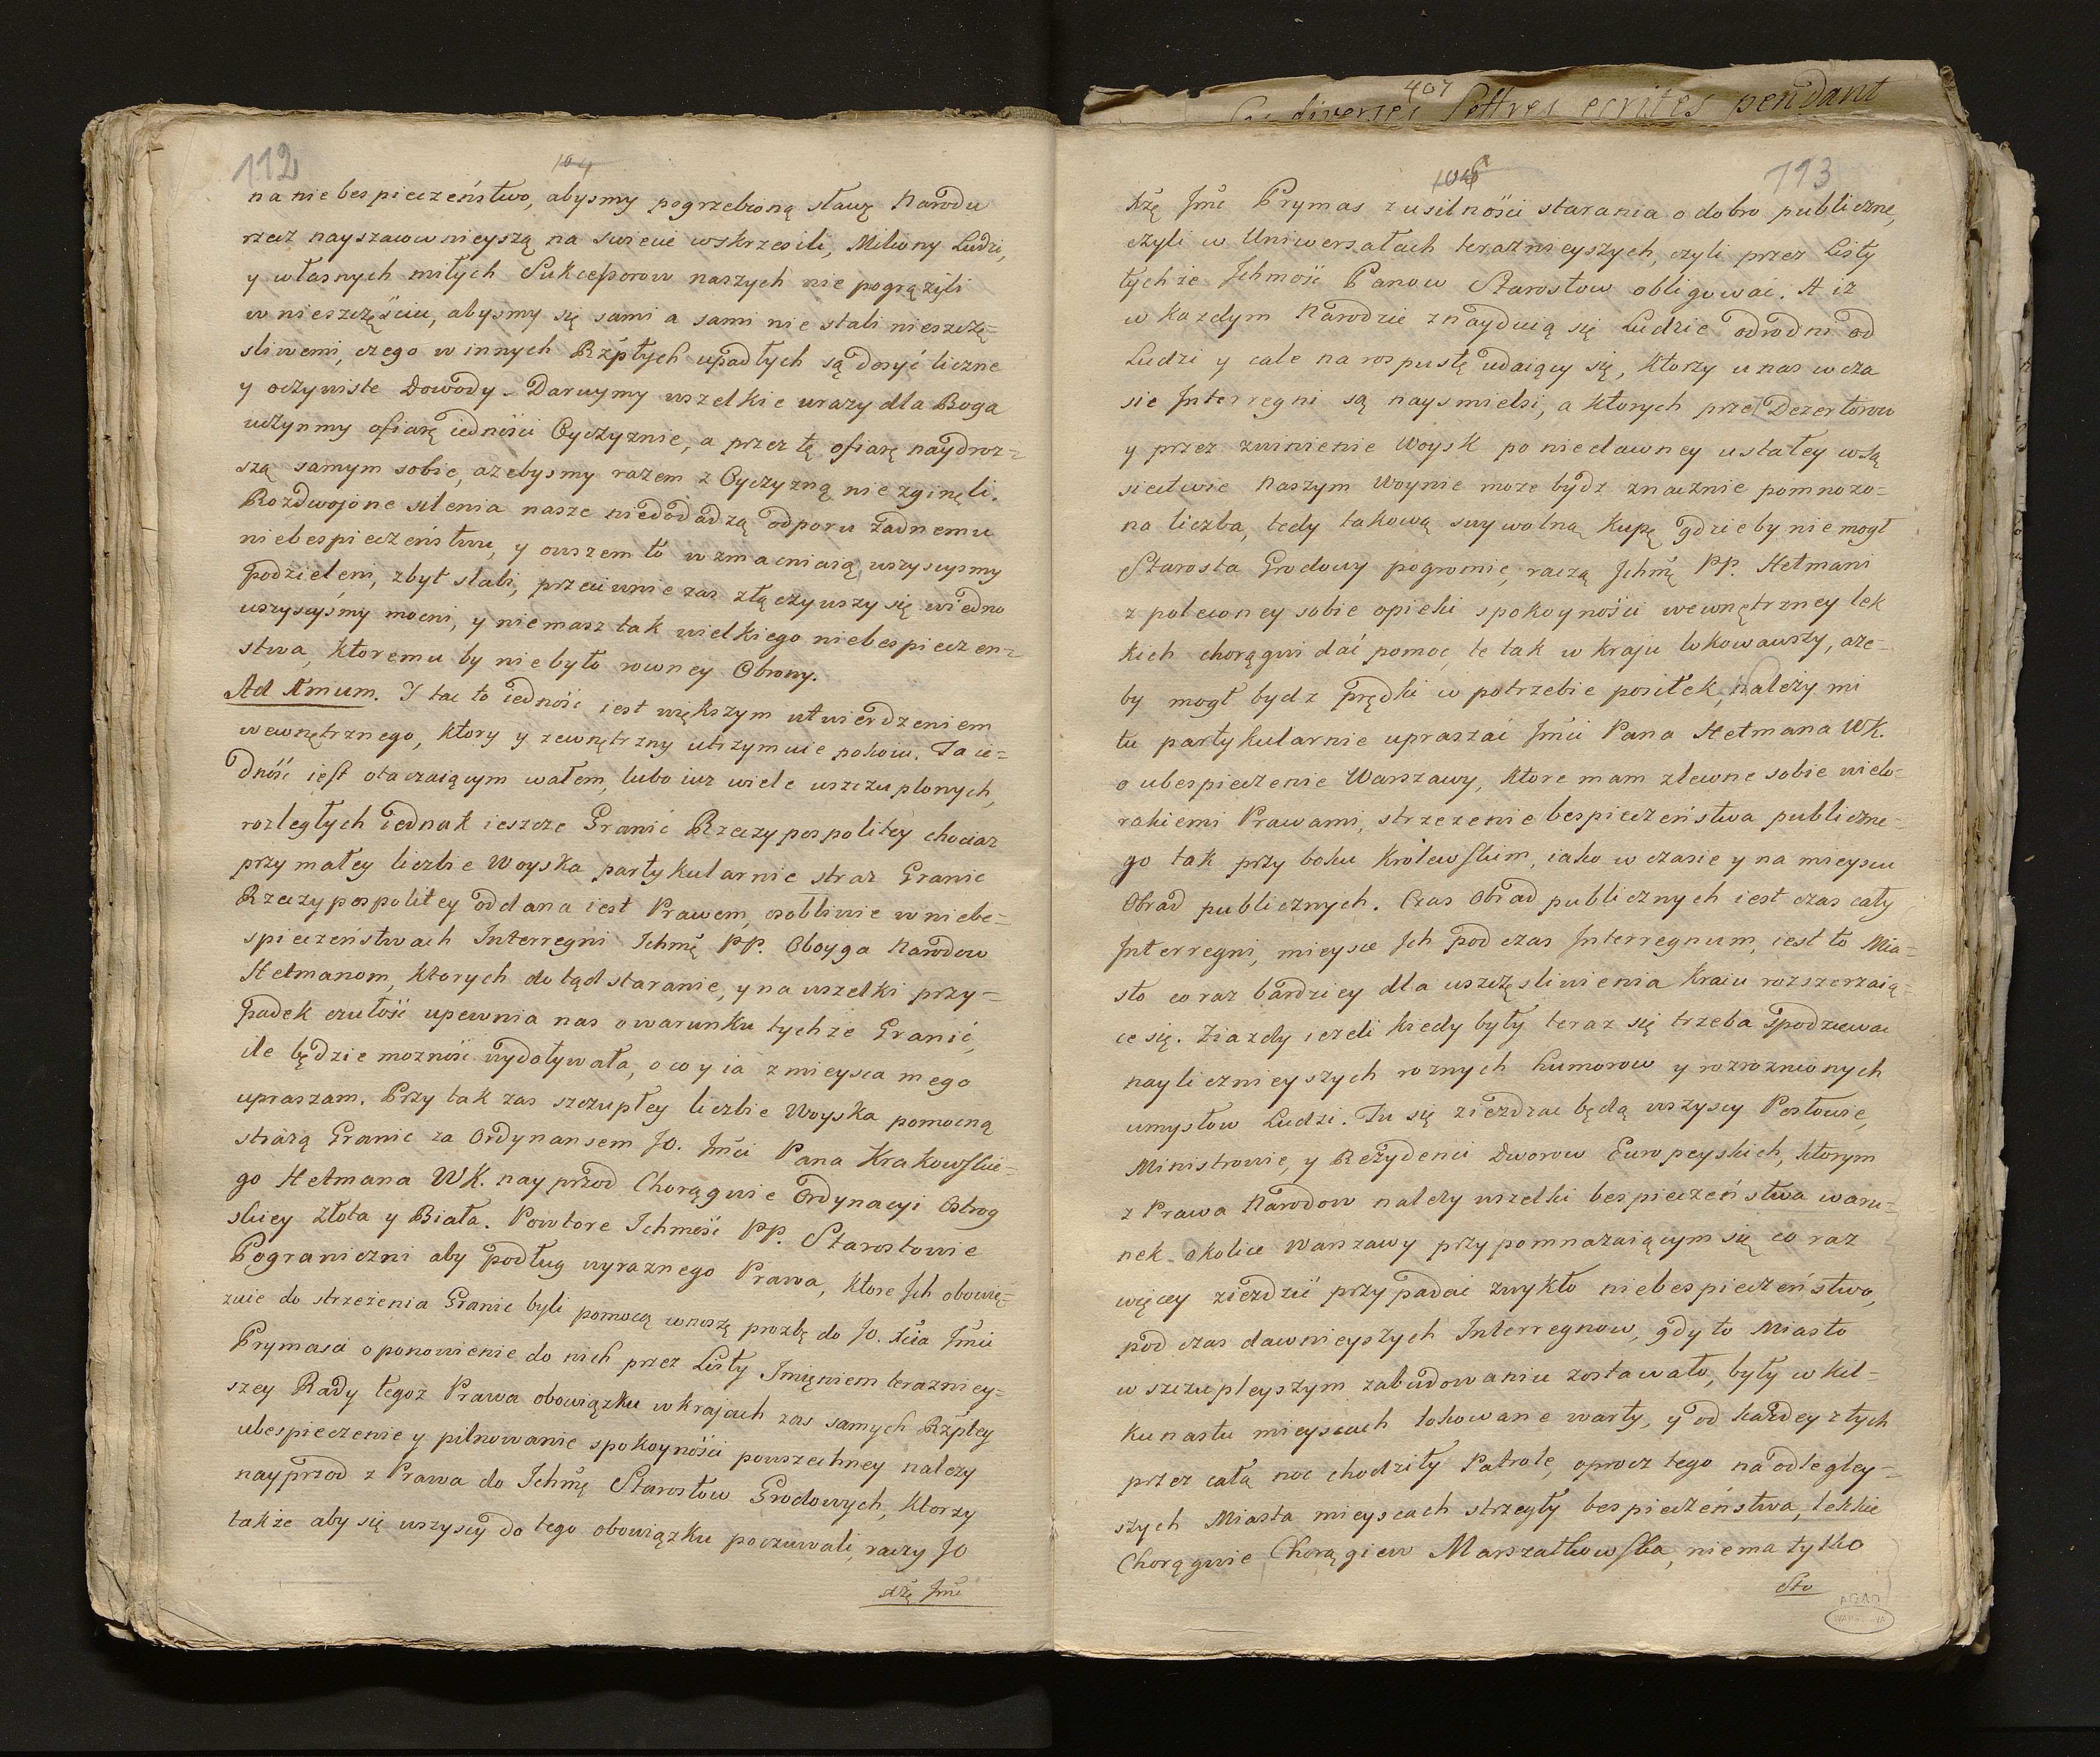 112
104
na niebespieczeństwo, abysmy pogrzebioną sławę Narodu
rzecz nayszacownieyszą na swiecie wskrzesili, Miliony Ludzi,
y własnych miłych Sukcessorow naszych nie pogrązyli
w nieszczęściu, abysmy się sami a sami nie stali nieszczę=
sliwemi, czego w innych Rzpłtych upadłych są dosyć liczne
y oczywiste Dowody. Daruymy wszelkie urazy dla Boga
uczynmy ofiarę iedności Oyczyznie, a przez tę ofiarę naydroz=
szą samym sobie, azebysmy razem z Oyczyzną nie zgineli.
Rozdwojone silenia nasze niedodadzą odporu żadnemu
niebespieczeństwu, y owszem to wzmacniaią, wszyscysmy
podzieleni, zbyt słabi, przeciwnie zas złączywszy się wiedno
wszyscysmy mocni, y niemasz tak wielkiego niebespieczen=
stwa, ktoremu by niebyło rowney Obrony.
Ad Amum. I tac to iedność iest większym utwierdzeniem
wewnętrznego, ktory y zewnętrzny utrzymuie pokoiu. Ta ie=
dność iest otaczaiącym wałem, lubo iuz wiele uszczuplonych,
rozległych iednak ieszcze Granic Rzeczypospolitey chociaz
przy małey liczbie Woyska partykularnie straz Granic
Rzeczypospolitey oddana iest Prawem, osobliwie w niebe=
spieczeństwach Interregni Ichmę PP. Oboyga Narodow
Hetmanom, ktorych dotąd staranie, y na wszelki przy=
padek czułość upewnia nas o warunku tychze Granic,
ile będzie moznośc wydoływała, o co y ia z mieysca mego
upraszam. Przy tak zas szczupłey liczbie Woyska pomocną
strażą Granic za Ordynansem JO. Jmci Pana Krakowskie=
go Hetmana WK. nayprzod Chorągwie Ordynacyi Ostrog
skiey Złota y Biała. Powtore Ichmość PP. Starostowie
Pograniczni aby podług wyraznego Prawa, ktore Ich obowię=
zuie do strzeżenia Granic byli pomocą wnoszę prozbę do JO. Xcia Jmci
Prymasa o ponowienie do nich przez Listy Imięniem terazniey=
szey Rady tegoz Prawa obowiązku w krajach zas samych Rzpltey
ubespieczenie y pilnowanie spokoyności powszechney nalezy
nayprzod z Prawa do Ichmę Starostow Grodowych, ktorzy
także aby się wszyscy do tego obowiązku poczuwali, raczy JO
Xżę Jmć
407
diverses Lettres ecrites pendant
113
Xżę Jmć Prymas z usilności starania o dobro publiczne,
czyli w Uniwersałach teraznieyszych, czyli przez Listy
tychże Ichmość Panow Starostow obligowac. A iz
w kazdym Narodzie znayduią się Ludzie odrodni od
Ludzi y cale na rospustę udaiący się, ktorzy u nas w cza
sie Interregni są naysmielsi, a ktorych przez Dezerterow
y przez zwinienie Woysk po niedawney ustałey w są
siectwie Naszym Woynie moze bydz znacznie pomnozo=
na liczba, tedy takową swywolną kupę gdzie by nie mogł
Starosta Grodowy pogromic, raczą Ichmę PP. Hetmani
z poleconey sobie opieki spokoyności wewnętrzney lek
kich chorągwi dać pomoc, te tak w kraju lokowawszy, aze=
by mogł bydz prędki w potrzebie posiłek, należy mi
tu partykularnie upraszać Jmci Pana Hetmana WK.
o ubespieczenie Warszawy, ktore mam zlecone sobie wielo=
rakiemi Prawami, strzezenie bespieczeństwa publiczne=
go tak przy boku Królewskim, iako w czasie y na mieyscu
Obrad publicznych. Czas Obrad publicznych iest czas cały
Interregni, mieysce Ich podczas Interregnum, iest to Mia=
sto coraz bardziey dla uszczęsliwienia Kraiu rozszerzaią=
ce się. Ziazdy iezeli kiedy były teraz się trzeba spodziewac
nayliczneyszych roznych humorow y rozroznionych
umysłow Ludzi. Tu się ziezdzac będą wszyscy Posłowie,
Ministrowie, y Rezydenci Dworow Europeyskich, ktorym
z Prawa Narodow nalezy wszelki bespieczeństwa waru=
nek. okolice Warszawy przypomnazaiącym się co raz
więcey ziezdzie przypadac zwykło niebespieczeństwo,
pod czas dawnieyszych Interregnow, gdy to Miasto
w szczupleyszym zabudowaniu zostawało, były w kil=
kunastu mieyscach lokowane warty, y od każdey z tych
przez całą noc chodziły Patrole, oprocz tego na odległey=
szych Miasta mieyscach strzegły bespieczeństwa, lekkie
Chorągwie Chorągiew Marszałkowska, niema tylko
Sto
AGAD
WARSZAWA